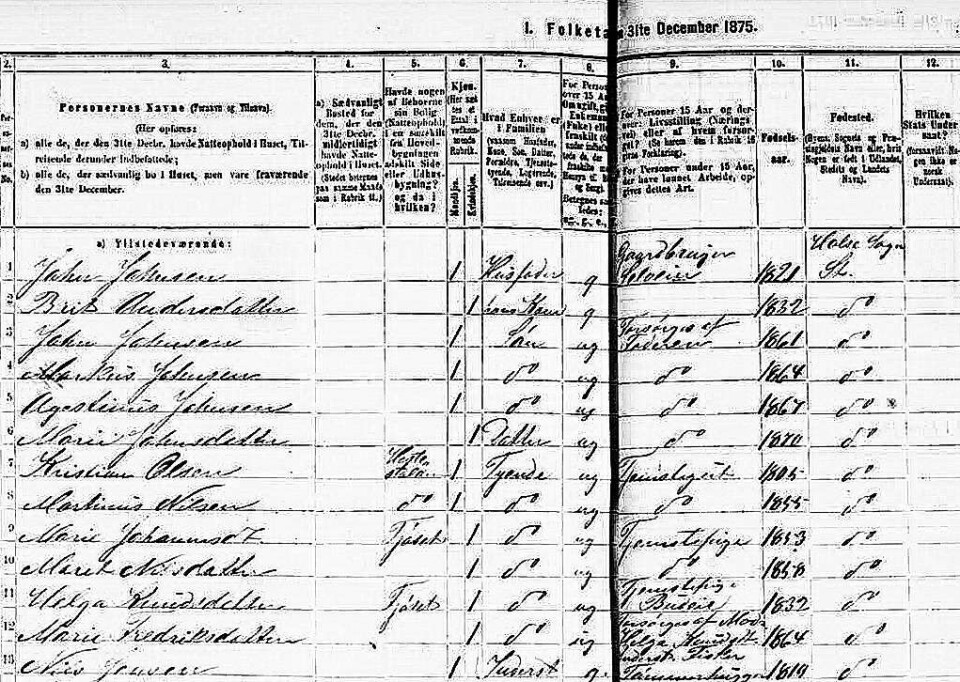 I. Folketa 31te December 1875.
2. 3. 4. 5. 6. 7. 8. 9. 10. 11. 12.
Personernes Navne (Fornavn og Tilnavn).
(Her opføres:
a) alle de, der den 31te Decbr. havde Natteophold i Huset, Til-
reisende derunder indbefattede;
b) alle de, der sædvanlig bo i Huset, men vare fraværende
den 31te December.
a) Sædvanligt
Bosted for
dem, der den
31te Decbr.
midlertidigt
havde Natte-
ophold i Huset.
(Stedet betegnes
paa samme Maade
som i Rubrik
Havde nogen
af Beboerne
sin Bolig
(Natteophold)
i en særskilt
fra Hoved-
bygningen
skilt Side-
eller Udhus-
bygning?
og da i
hvilken?
Kjøn.
(Her sæt-
tes et
Ettal i
vedkom-
mende
Rubrik.
Mandkjøn.
Kvindekjøn.
Hvad Enhver er
i Familien
(saasom Husfader,
Kone, Søn, Datter,
Forældre, Tjeneste-
tyende, Logerende,
Tilreisende osv.)
For Personer 15 Aar og der-
over: Livsstilling (Nærings-
vei) eller af hvem forsør-
get? (Se herom den i Rubrik 16
givne Forklaring).
For Personer under 15 Aar,
der have lønnet Arbeide, op-
gives dettes Art.
Fødsels-
aar.
Fødested.
(Byens, Sognets og Præ-
stegjeldets Navn eller, hvis
Nogen er født i Udlandet,
Stedets og Landets
Navn).
Hvilken
Stats Under-
saat?
a) Tilstedeværende:
1 John Johnsen 1 Husfader g Gaardbruger Selveier 1821 Halse Sogn
2 Brit Andersdatter 1 hans Kone g 1832 do
3 John Johnsen 1 Søn ug Forsørges af Faderen 1861 do
4 Markus Johnsen 1 do ug do 1864 do
5 Agostinus Johnsen 1 do ug do 1867 do
6 Marie Johnsdatter 1 Datter ug do 1870 do
7 Kristian Olsen Heste-stalden 1 Tyende ug Tjenstegut do
8 Martinus Nilsen do 1 do ug do 1855 do
9 Marie Johannesdt Fjøset 1 do ug Tjenstepige 1853 do
10 Maret Nilsdatter 1 do ug do 1858 do
11 Helga Knudsdatter Fjøset 1 do ug Tjenstepige Budeie 1832 do
12 Marie Fredriksdatter 1 do ug Forsørges af Mod. Helga Knudsdt 1864 do
13 Nils Jensen 1 Inderst g Inderst Fisker Tømmerhugger 1819 do